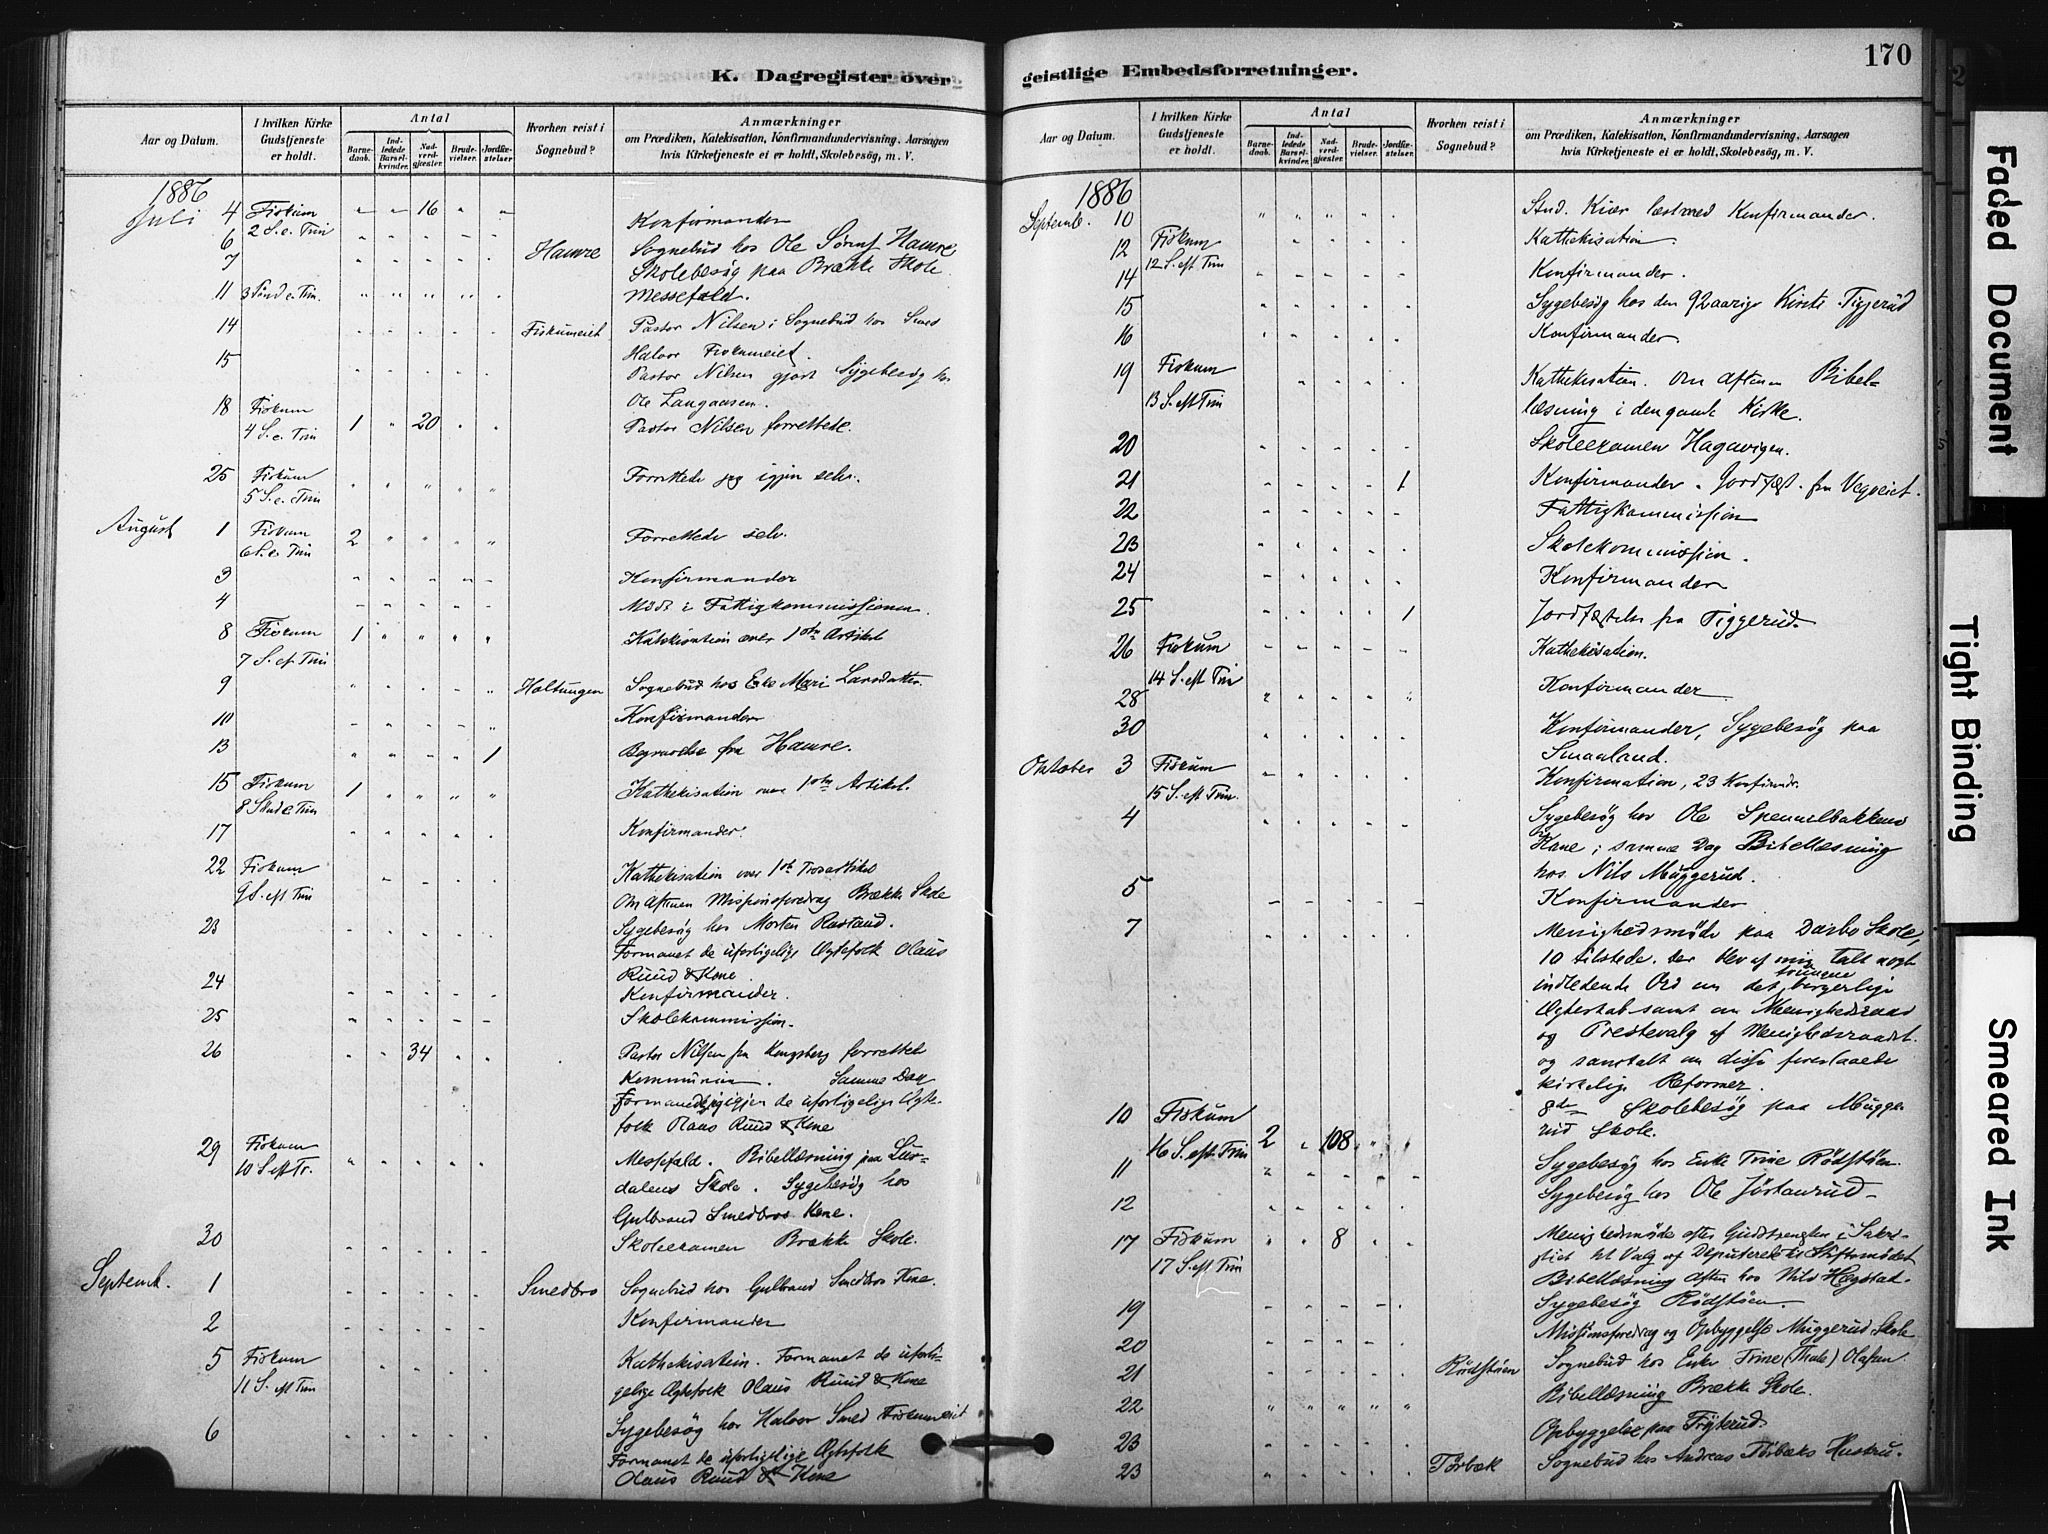 K. Dagregister over
Aar og Datum.
I hvilken Kirke Gudstjeneste er holdt.
Antal
Barne-daab.
Ind-ledede Barsel-kvinder.
Nad-verd-gjæster.
Brude-vielser.
Jordfæ-stelser.
Hvorhen reist i Sognebud?
Anmærkninger
om Prædiken, Katekisation, Konfirmandundervisning, Aarsagen
hvis Kirketjeneste ei er holdt, Skolebesøg, m. V.
1886
Juli 4 Fiskum 16
2 S. e. Trin
6 Konfirmander
7 Hamre Sognebud hos Ole Hamre
Skolebesøg paa Brække Skole
11 3 Sønd e. Trin. Messefald.
14 Fiskumeiet Pastor Nilsen i Sognebud hos Smed
Halvor Fiskumeiet.
15 Pastor Nilsen gjort Sygebesøg hos
Ole Langaasen.
18 Fiskum 1 20 Pastor Nilsen forrettede.
4 S. e. Trin
25 Fiskum Forrettede jeg igjen selv.
5 S. e. Trin
August 1 Fiskum 2 Forrettede selv.
6 S. e. Trin
3 Konfirmander
4 Møde i Fattigkommissionen.
8 Fiskum 1 Katekisation over 1ste Artikel
7 S. ef. Trin
9 Holtungen Sognebud hos Enke Mari Larsdatter.
10 Konfirmander
13 1 Begravelse fra Hamre.
15 Fiskum 1 Kathekisation over 1ste Artikel.
8 Sønd e Trin
17 Konfirmander.
22 Fiskum Kathekisation over 1ste Trosartikel
9 S. eft Trin Om Aftenen Missionsforedrag Brække Skole
23 Sygebesøg hos Morten Rustand.
Formanet de uforligelige Ægtefolk Olaus
Ruud & Kone.
24 Konfirmander.
25 Skolekommission.
26 34 Pastor Nilsen fra Kongsberg forrettet
Kommunion. Samme Dag
Formanede jeg igjen de uforligelige Ægte-
folk Olaus Ruud & Kone
29 Fiskum Messefald. Bibellæsning paa Lur-
10 S. eft Tr.
dalens Skole. Sygebesøg hos
Gulbrand Smedbros Kone.
30 Skoleexamen Brække Skole.
Septemb. 1 Smedbro Sognebud hos Gulbrand Smedbros Kone.
2 Konfirmander
5 Fiskum Kathekisation. Formanet de uforli-
11 S. eft Trin gelige Ægtefolk Olaus Ruud & Kone
6 Sygebesøg hos Halvor Smed Fiskumeiet
Formanet de uforligelige Ægtefolk
Olaus Ruud & Kone
geistlige Embedsforretninger.
170
Aar og Datum.
I hvilken Kirke Gudstjeneste er holdt.
Antal
Barne-daab.
Ind-ledede Barsel-kvinder.
Nad-verd-gjæster.
Brude-vielser.
Jordfæ-stelser.
Hvorhen reist i Sognebud?
Anmærkninger
om Prædiken, Katekisation, Konfirmandundervisning, Aarsagen
hvis Kirketjeneste ei er holdt, Skolebesøg, m. V.
1886
Septemb. 10 Stud. Kiær læst med Konfirmander.
12 Fiskum Kathekisation.
12 S. eft Trin
14 Konfirmander.
15 Sygebesøg hos den 92 aarige Kirsti Tiggerud
16 Konfirmander.
19 Fiskum Kathekisation. Om Aftenen Bibel-
13 S. eft Trin læsning i den gamle Kirke.
20 Skoleexamen Hagavigen.
21 1 Konfirmander. Jordfæst. fra Vegeiet.
22 Fattigkommission
23 Skolekommission.
24 Konfirmander
25 1 Jordfæstelse fra Tiggerud.
26 Fiskum Kathekisation.
14 S. eft Trin
28 Konfirmander
30 Konfirmander, Sygebesøg paa
Smaaland.
Oktober 3 Fiskum Konfirmation, 23 Konfirmdr.
15 S. eft Trin.
4 Sygebesøg hos Ole Spennelbakkens
Kone; samme Dag Bibellæsning
hos Nils Muggerud.
5 Konfirmander
7 Menighedsmøde paa Darbo Skole,
10 tilstede. der blev af mig talt nogle
indledende Ord om det tvungne borgerlige
Ægteskab samt om Menighedsraad
og Prestevalg af Menighedsraadet.
og samtalt om disse forestaaende
kirkelige Reformer.
8de Skolebesøg paa Mugge-
rud Skole.
10 Fiskum 2 108
16 S. eft Trin
11 Sygebesøg hos Enke Trine Rødstøen.
12 Sygebesøg hos Ole Jørtanrud
17 Fiskum 8 Menighedsmøde efter Gudstjenesten i Sakri-
17 S. eft Trin stiet til Valg af Deputerede til Stiftsmødet
Bibellæsning Aften hos Nils Hægstad.
19 Sygebesøg Rødstøen.
20 Missionsforedrag og Opbyggelse Muggerud Skole
21 Rødstøen Sognebud hos Enke Trine (Thale) Olafsen
22 Bibellæsning Brække Skole.
23 Opbyggelse paa Frøkerud.
23 Tørbæk Sognebud hos Andreas Tørbæks Hustru.
Faded Document
Tight Binding
Smeared Ink